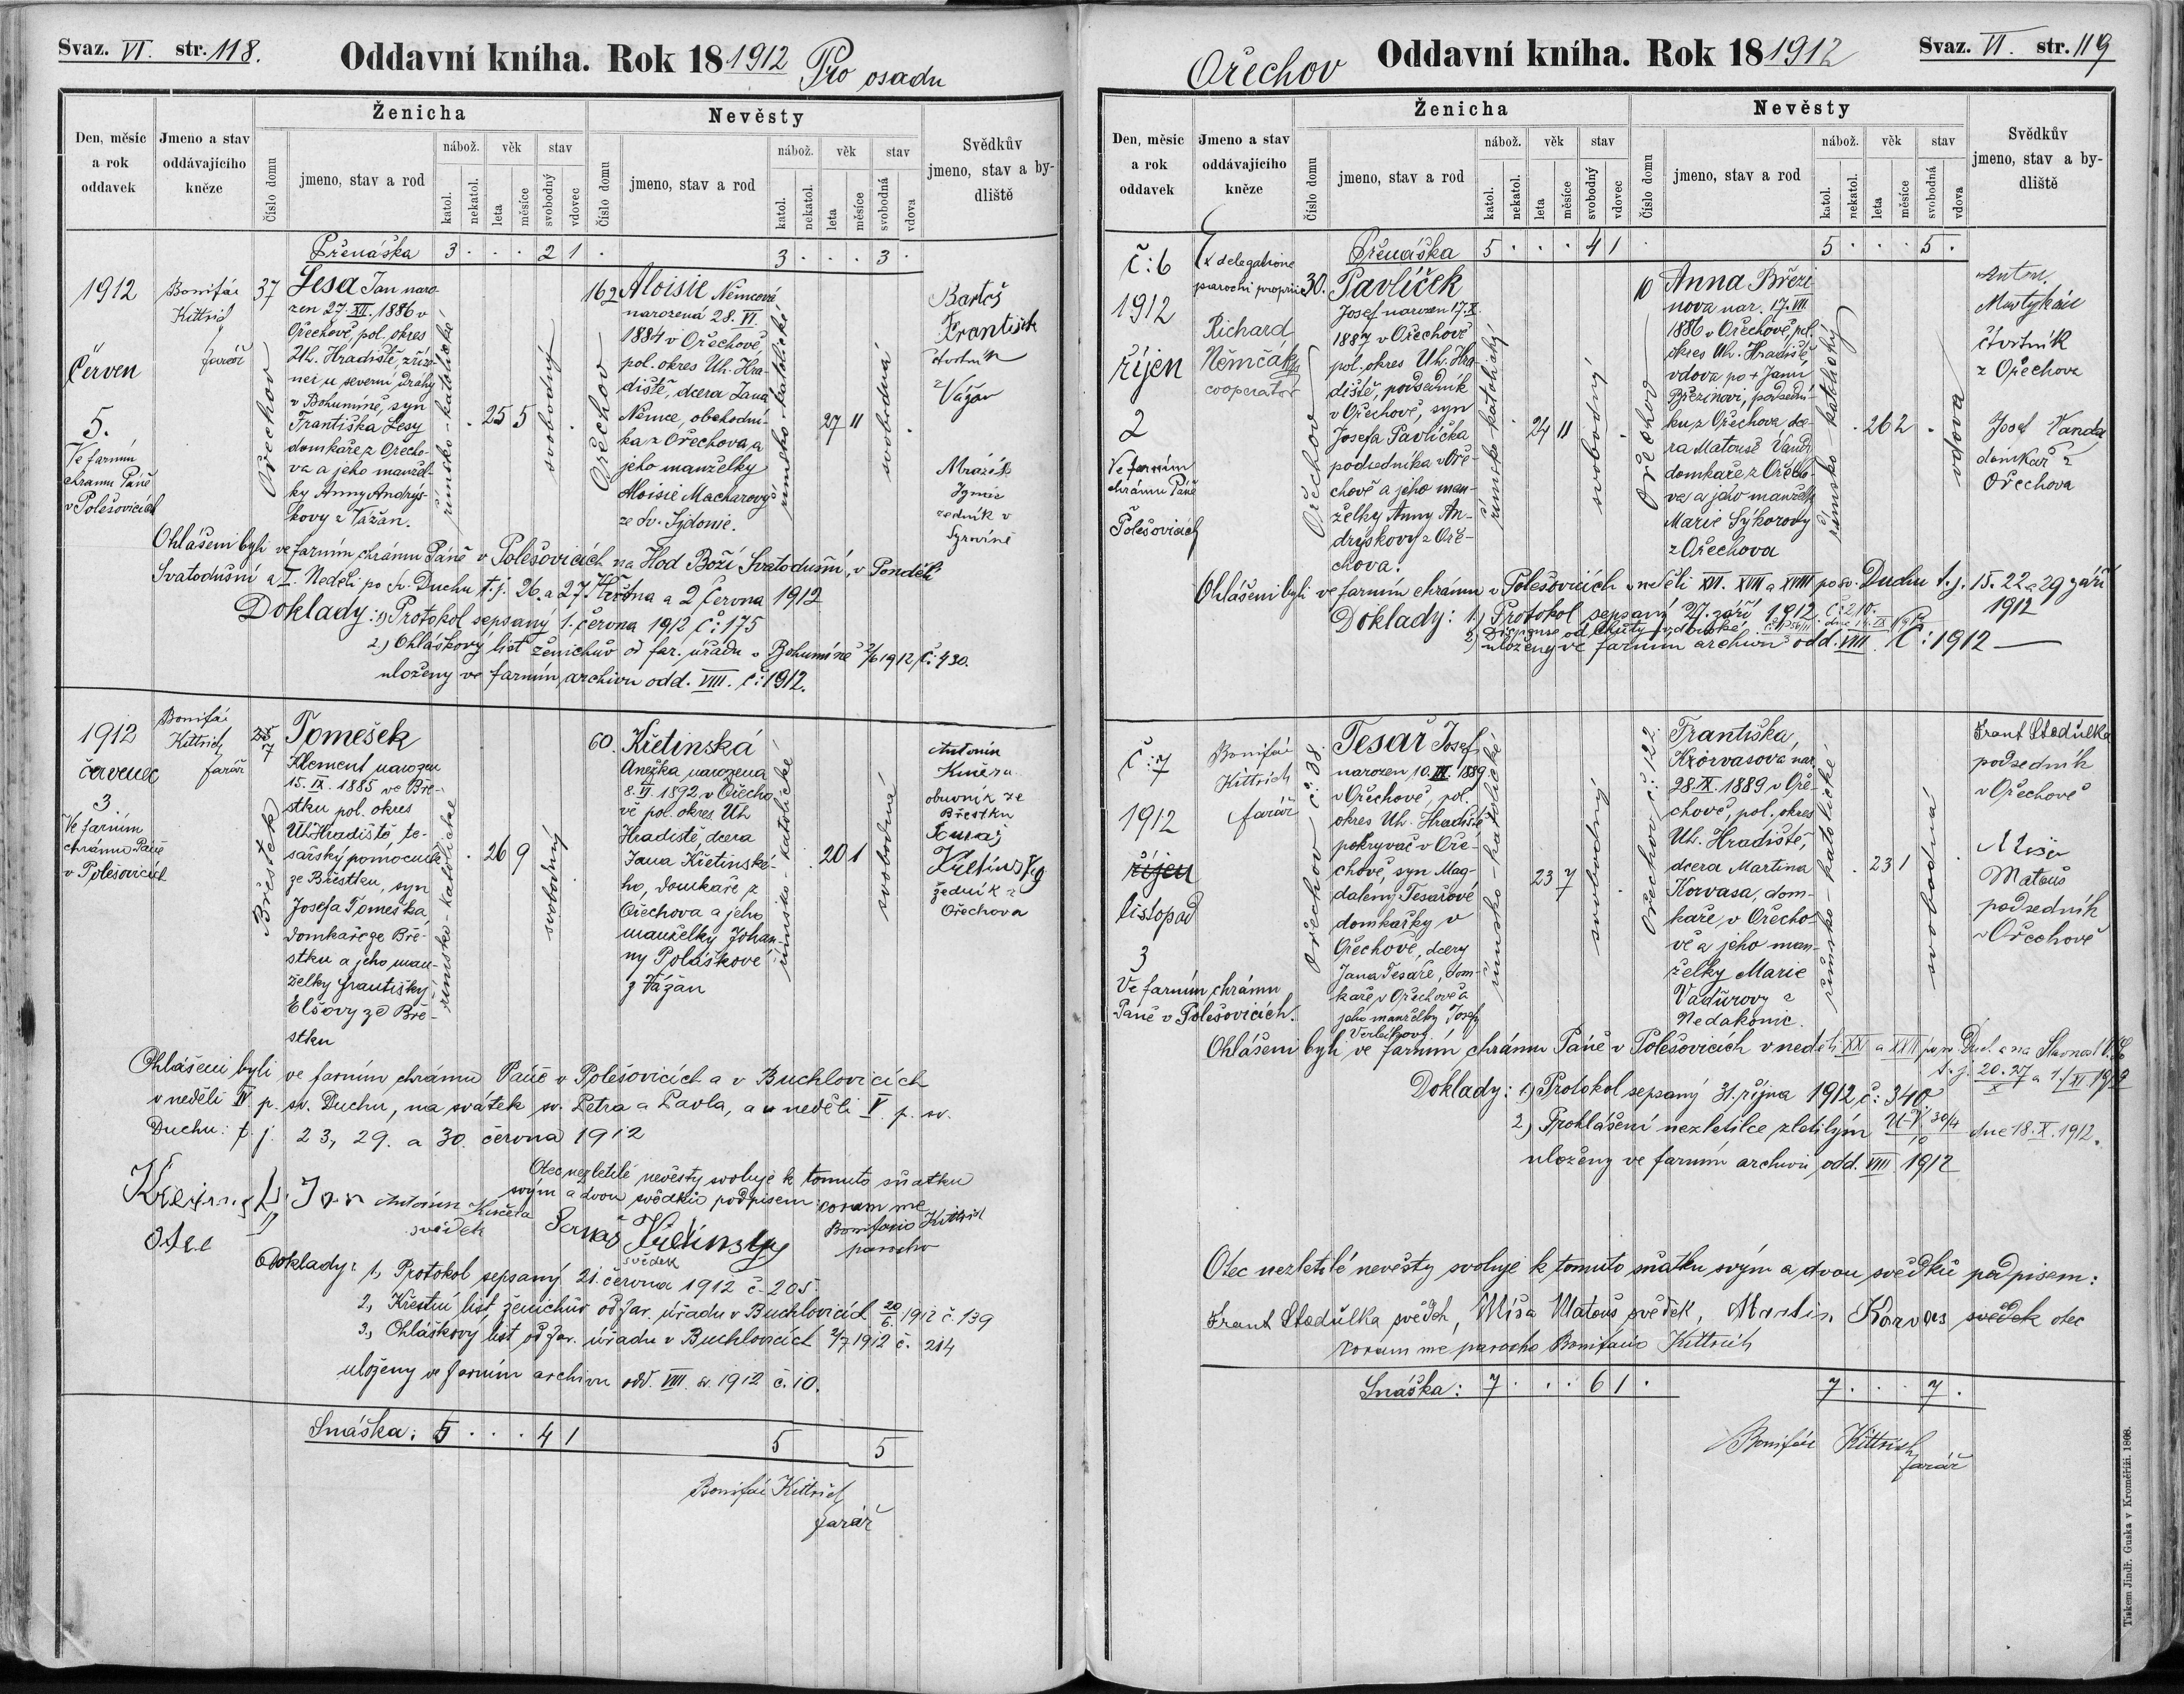 Svaz. VI. str. 118.
Oddavní kniha. Rok 181912 Pro osadu
Den, měsíc a rok oddavek
Jmeno a stav oddávajícího kněze
Ženicha
Číslo domu
jmeno, stav a rod
nábož.
katol.
nekatol.
věk
leta
měsíce
stav
svobodný
vdovec
Nevěsty
Číslo domu
jmeno, stav a rod
nábož.
katol.
nekatol.
věk
leta
měsíce
stav
svobodná
vdova
Svědkův jmeno, stav a bydliště
Přenáška 3 . . . 2 1 . 3 . . . 3 .
1912
Červen
5.
Ve farním
chrámu Páně
v Polešovicích
Bonifác
Kittrich
farář
37
Ořechov
Lesa Jan naro-
zen 27. XII. 1886 v
Ořechově, pol. okres
Uh. Hradiště, zříze-
nec u severní dráhy
v Bohumíně, syn
Františka Lesy
domkaře z Ořecho-
va a jeho manžel-
ky Anny Andrýs-
kovy z Vážan.
římsko-katolické
. 25 5
svobodný
.
162
Ořechov
Aloisie Němcová
narozená 28. VI.
1884 v Ořechově
pol. okres Uh. Hra-
diště, dcera Jana
Němce, obchodní-
ka z Ořechova, a
jeho manželky
Aloisie Macharovy
ze Sv. Sidonie.
římsko-katolické
27 11
svobodná
.
Bartoš
František
čtvrtník
z Vážan
Mrázek
Ignác
zedník v
Syrovíně
Ohlášeni byli ve farním chrámu Páně v Polešovicích na Hod Boží Svatodušní, v Pondělí
Svatodušní a I. Neděli po Sv. Duchu t. j. 26. a 27. května a 2 Června 1912
Doklady: 1) Protokol sepsaný 1. června 1912 Č: 175
2.) Ohláškový list ženichův od far. úřadu v Bohumíně 2/6 1912 Č: 430.
uloženy ve farním archivu odd. VIII. č: 1912.
1912
červenec
3
Ve farním
chrámu Páně
v Polešovicích
Bonifác
Kittrich
farář
7
Břestek
Tomešek
Klement narozen
15. IX. 1885 ve Bře-
stku pol. okres
Uh. Hradiště, te-
sařský pomocník
ze Břestku, syn
Josefa Tomeška,
domkaře ze Bře-
stku a jeho man-
želky Františky
Elšovy ze Bře-
stku
římsko-katolické
. 26 9
svobodný
.
60.
Křetinská
Anežka narozena
8. VI. 1892 v Ořecho-
vě pol. okres Uh
Hradiště, dcera
Jana Křetinské-
ho, domkaře z
Ořechova a jeho
manželky Johan-
ny Poláškové
z Vážan
římsko-katolické
. 20 1
svobodná
Antonín
Kučera
obuvník ze
Břestku
Křetinský
zedník z
Ořechova
Ohlášeni byli ve farním chrámu Páně v Polešovicích a v Buchlovicích
v neděli IV. p. sv. Duchu, na svátek sv. Petra a Pavla, a v neděli V. p. sv.
Duchu: t. j. 23, 29. a 30. června 1912
Otec nezletilé nevěsty svoluje k tomuto sňatku
svým a dvou svědků podpisem: coram me
Bonifacio Kittrich
parocho
Jan
otec
Antonín Kučera
svědek
Křetinský
svědek
Doklady: 1, Protokol sepsaný 21. června 1912 č. 205
2, Křestní list ženichův od far. úřadu v Buchlovicích 20/6. 1912 č. 139
3., Ohláškový list od far. úřadu v Buchlovicích 2/7 1912 č. 214
uloženy ve farním archivu odd. VIII. 1912 č. 10.
Snáška: 5 . . . 4 1 5 5
Bonifác Kittrich
farář
Ořechov
Oddavní kniha. Rok 181912
Svaz. VI. str. 119
Den, měsíc a rok oddavek
Jmeno a stav oddávajícího kněze
Ženicha
Číslo domu
jmeno, stav a rod
nábož.
katol.
nekatol.
věk
leta
měsíce
stav
svobodný
vdovec
Nevěsty
Číslo domu
jmeno, stav a rod
nábož.
katol.
nekatol.
věk
leta
měsíce
stav
svobodná
vdova
Svědkův jmeno, stav a bydliště
Přenáška 5 . . . 4 1 . 5 . . . 5 .
Č: 6
1912
říjen
2
Ve farním
chrámu Páně
Polešovicích
Ex delegatione
parochi proprii
Richard
Němčák
cooperator
30.
Ořechov
Pavlíček
Josef narozen 17. X.
1887 v Ořechově
pol. okres Uh. Hra-
diště, podsedník
v Ořechově, syn
Josefa Pavlíčka
podsedníka v Oře-
chově a jeho man-
želky Anny An-
dryskovy z Oře-
chova.
. 24 11
svobodný
.
10
Ořechov
Anna Březi-
nova nar. 17. VII
1886 v Ořechově, pol.
okres Uh. Hradiště
vdova po + Janu
Březinovi, podsední-
ku z Ořechova dce-
ra Matouše Vandy
domkaře z Ořecho-
va a jeho manželky
Marie Sýkorovy
z Ořechova
. 26 2 .
vdova
Anton.
čtvrtník
z Ořechova
Josef Vanda
domkař z
Ořechova
Ohlášeni byli ve farním chrámu v Polešovicích v neděli XVI. XVII a XVIII po sv. Duchu t. j. 15. 22 a 29 září
1912
Doklady: 1.) Protokol sepsaný 27. září 1912 Č: 210.
uloženy ve farním archivu odd. VIII. Č: 1912
Č: 7
1912
říjen
listopad
3
Ve farním chrámu
Páně v Polešovicích.
Bonifác
Kittrich
farář
Ořechov č: 38.
Tesař Josef,
narozen 10. III. 1889
v Ořechově, pol.
okres Uh. Hradiště
pokryvač v Oře-
chově, syn Mag-
daleny Tesařové
domkařky v
Ořechově, dcery
Jana Tesaře, dom-
kaře v Ořechově a
jeho manželky Josefy
římsko-katolické
23 7
svobodný
.
Ořechov č: 122.
Františka
Korvasova nar.
28. IX. 1889 v Oře-
chově, pol. okres
Uh. Hradiště,
dcera Martina
Korvasa, dom-
kaře v Ořecho-
vě a jeho man-
želky Marie
Vaďurovy z
Nedakonic.
římsko-katolické
. 23 1
svobodná
Frant Stodůlka
podsedník
v Ořechově
Míša
Matouš
podsedník
v Ořechově
Ohlášeni byli ve farním chrámu Páně v Polešovicích v neděli XXI a XXII po sv. Duch. a na Slavnost V. S.
t. j. 20. 27/X a 1./XI. 1912
Doklady: 1) Protokol sepsaný 31. října 1912 č: 340
2) Prohlášení nezletilce zletilým dne 18. X. 1912.
uloženy ve farním archivu odd. VIII 1912
Otec nezletilé nevěsty svoluje k tomuto sňatku svým a dvou svědků podpisem:
Frant Stodůlka svědek, Míša Matouš svědek, Martin Korvas svědek otec
coram me parocho Bonifacio Kittrich
Snáška: 7 . . . 6 1 . 7 . . . 7 .
Bonifác Kittrich
farář
Tiskem Jindř. Guska v Kroměříži. 1868.